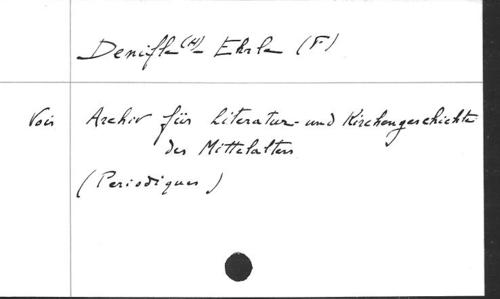 Denifle (H)- Ehrle (F)
Voir Archiv für Literatur- und Kirchengeschichte
des Mittelalters
(Periodiques)